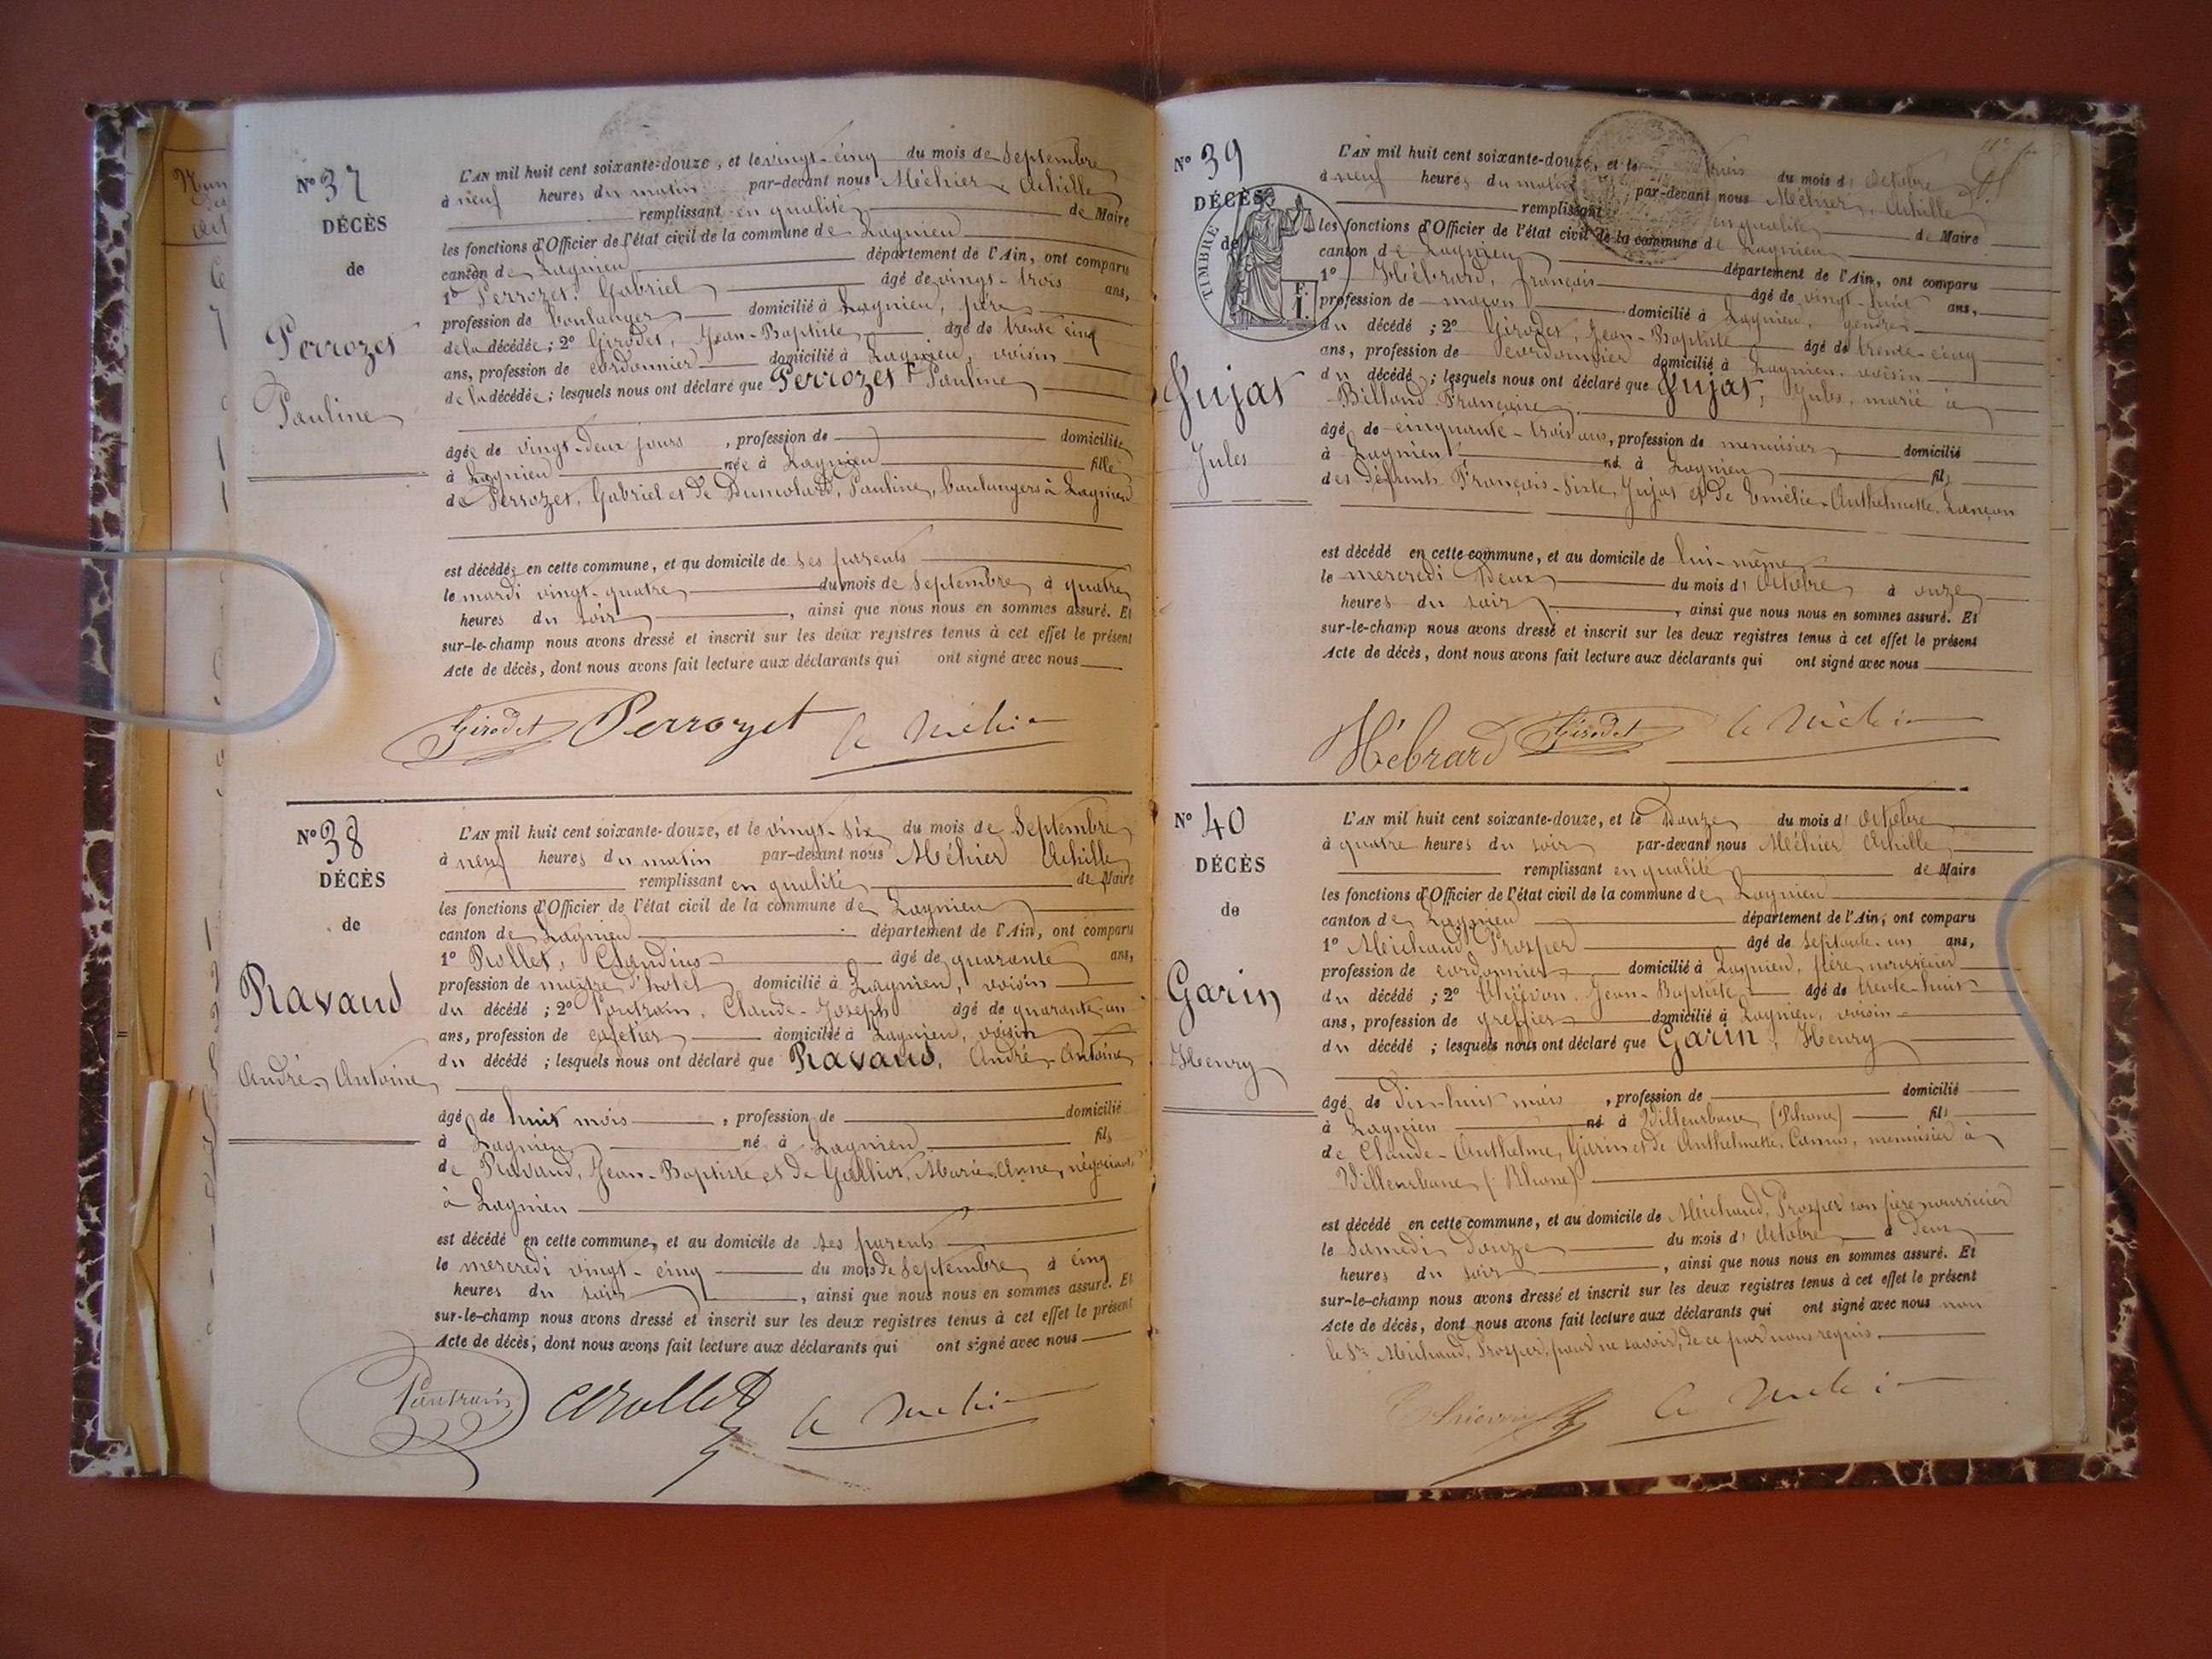 N° 37
DÉCÈS
de
Perrozet
Pauline
L'AN mil huit cent soixante-douze, et le vingt-cinq du mois de Septembre
à neuf heures du matin par-devant nous Méhier Achille
remplissant en qualité de Maire
les fonctions d'Officier de l'état civil de la commune de Lagnieu
canton de Lagnieu département de l'Ain, ont comparu
1° Perrozet, Gabriel âgé de vingt-trois ans,
profession de boulanger domicilié à Lagnieu, père
de la décédée ; 2° Girodet, Jean-Baptiste âgé de trente cinq
ans, profession de cordonnier domicilié à Lagnieu, voisin
de la décédée ; lesquels nous ont déclaré que Perrozet Pauline
âgée de vingt-deux jours , profession de domiciliée
à Lagnieu née à Lagnieu fille
de Perrozet, Gabriel et de Dumolard, Pauline, boulangers à Lagnieu
est décédée en cette commune, et au domicile de ses parents
le mardi vingt-quatre du mois de Septembre à quatre
heures du soir , ainsi que nous nous en sommes assuré. Et
sur-le-champ nous avons dressé et inscrit sur les deux registres tenus à cet effet le présent
Acte de décès, dont nous avons fait lecture aux déclarants qui ont signé avec nous
Girodet Perrozet A Méhier
N° 38
DÉCÈS
de
Ravaud
André, Antoine
L'AN mil huit cent soixante-douze, et le vingt-six du mois de Septembre
à neuf heures du matin par-devant nous Méhier Achille
remplissant en qualité de Maire
les fonctions d'Officier de l'état civil de la commune de Lagnieu
canton de Lagnieu département de l'Ain, ont comparu
1° Rollet, Claudius âgé de quarante ans,
profession de maître d'hotel domicilié à Lagnieu, voisin
du décédé ; 2° Poutrain, Claude-Joseph âgé de quarante-un
ans, profession de cafetier domicilié à Lagnieu, voisin
du décédé ; lesquels nous ont déclaré que Ravaud, André-Antoine
âgé de huit mois , profession de domicilié
à Lagnieu né à Lagnieu fils
de Ravaud, Jean-Baptiste et de Galliot, Marie-Anne, négociants
à Lagnieu
est décédé en cette commune, et au domicile de ses parents
le mercredi vingt-cinq du mois de Septembre à cinq
heures du soir , ainsi que nous nous en sommes assuré. Et
sur-le-champ nous avons dressé et inscrit sur les deux registres tenus à cet effet le présent
Acte de décès, dont nous avons fait lecture aux déclarants qui ont signé avec nous
Poutrain C Rollet A Méhier
N° 39
DÉCÈS
de
TIMBRE
F.
1.
Jujat
Jules
L'AN mil huit cent soixante-douze, et le trois du mois d'Octobre
à neuf heures du matin par-devant nous Méhier, Achille
remplissant en qualité de Maire
les fonctions d'Officier de l'état civil de la commune de Lagnieu
canton de Lagnieu département de l'Ain, ont comparu
1° Hébrard, françois âgé de vingt-huit ans,
profession de maçon domicilié à Lagnieu, gendre
du décédé ; 2° Girodet, Jean-Baptiste âgé de trente-cinq
ans, profession de cordonnier domicilié à Lagnieu, voisin
du décédé ; lesquels nous ont déclaré que Jujat, Jules, marié à
Billand Françoise
âgé de cinquante-trois ans, profession de menuisier domicilié
à Lagnieu né à Lagnieu fils
des défunts François-Sixte, Jujat et de Emélie-Anthelmette, Lançon
est décédé en cette commune, et au domicile de lui-même
le mercredi deux du mois d'Octobre à onze
heures du soir , ainsi que nous nous en sommes assuré. Et
sur-le-champ nous avons dressé et inscrit sur les deux registres tenus à cet effet le présent
Acte de décès, dont nous avons fait lecture aux déclarants qui ont signé avec nous
Hébrard Girodet A Méhier
N° 40
DÉCÈS
de
Garin
Henry
L'AN mil huit cent soixante-douze, et le douze du mois d'Octobre
à quatre heures du soir par-devant nous Méhier Achille
remplissant en qualité de Maire
les fonctions d'Officier de l'état civil de la commune de Lagnieu
canton de Lagnieu département de l'Ain, ont comparu
1° Michaud, Prosper âgé de septante-un ans,
profession de cordonnier domicilié à Lagnieu, père nourricier
du décédé ; 2° Thiévon, Jean-Baptiste âgé de trente-huit
ans, profession de greffier domicilié à Lagnieu, voisin
du décédé ; lesquels nous ont déclaré que Garin, Henry
âgé de dix-huit mois , profession de domicilié
à Lagnieu né à Villeurbane (Rhone) fils
de Claude-Anthelme, Garin et de Anthelmette, Camus, menuisier à
Villeurbane (Rhone)
est décédé en cette commune, et au domicile de Michaud, Prosper son père nourricier
le Samedi douze du mois d'Octobre à deux
heures du soir , ainsi que nous nous en sommes assuré. Et
sur-le-champ nous avons dressé et inscrit sur les deux registres tenus à cet effet le présent
Acte de décès, dont nous avons fait lecture aux déclarants qui ont signé avec nous non
le Sr. Michaud, Prosper, pour ne savoir, de ce par nous requis
Thievon A Méhier